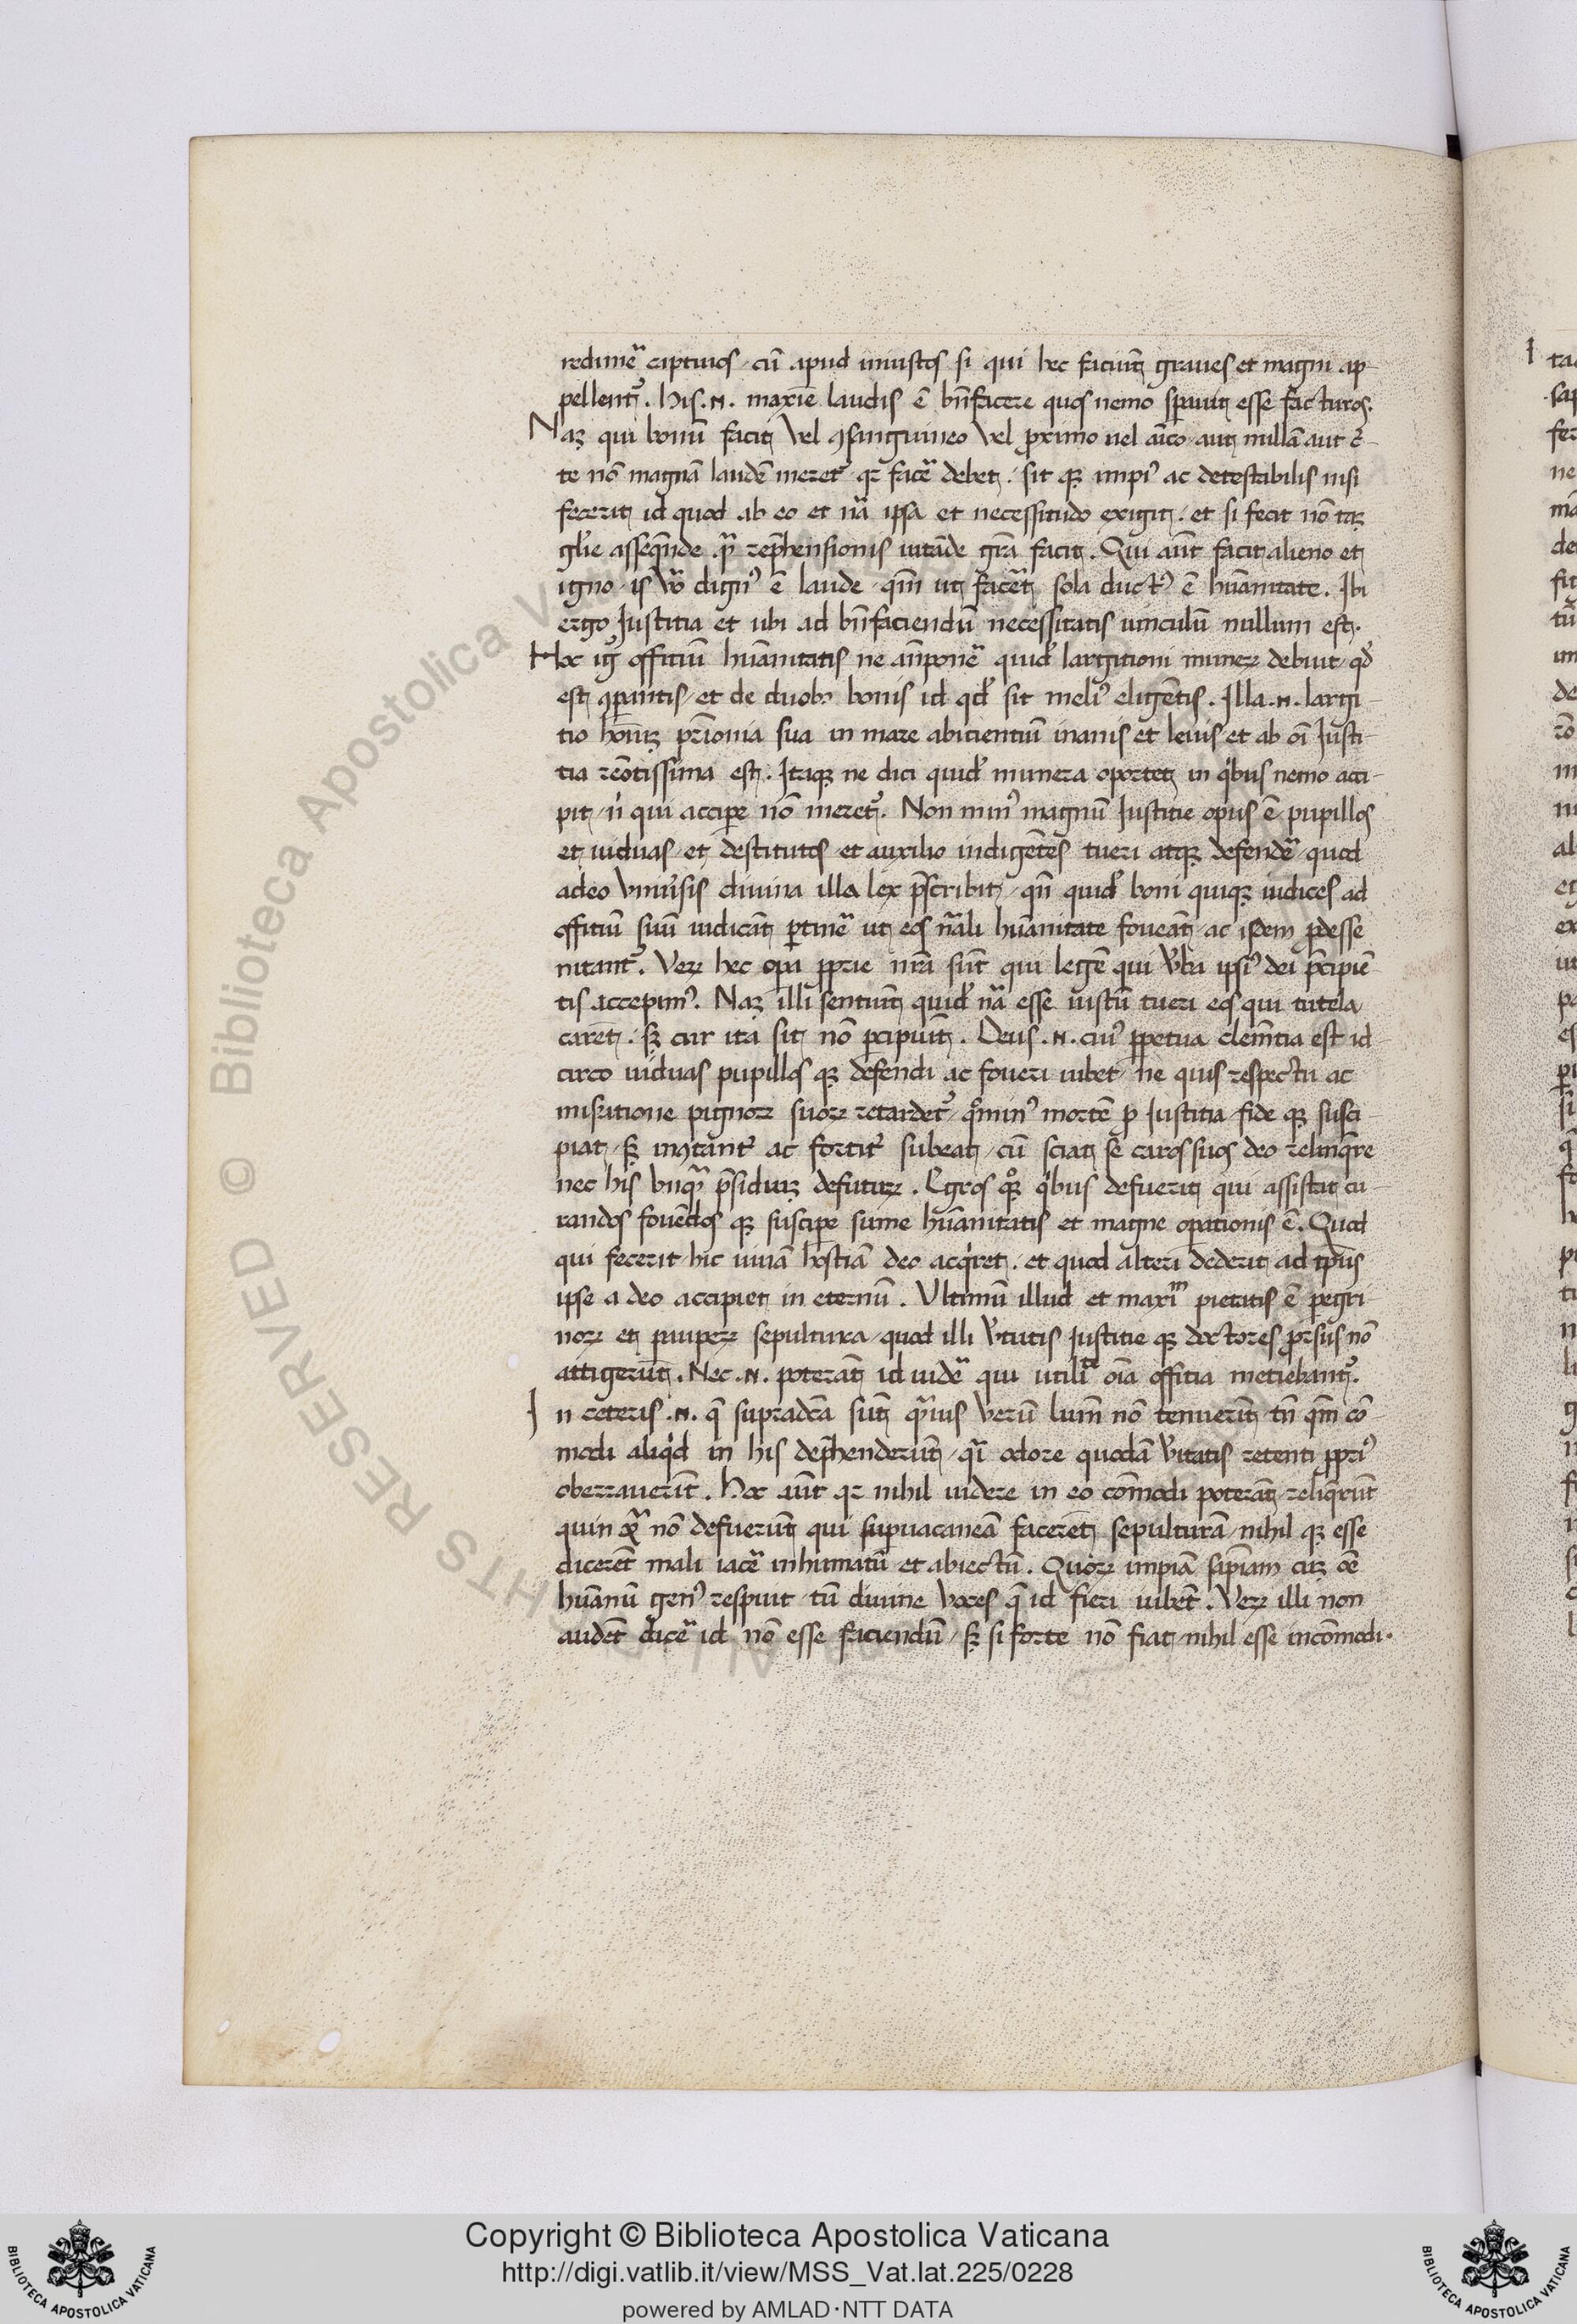 redimẽ captiuos / cũ apud iniustos si qui hec faciunt graues et magni ap-
pellent᷑. his .n. maxie laudis ẽ bñfacere quos nemo sperauit esse facturos.
Naȝ qui bonũ facit vel ꝯsanguineo vel proximo uel aı̃co aut nullã aut cer-
te nõ magnã laudẽ meret᷑ qꝛ facẽ debet. sit qȝ impiꝰ ac detestabilis nisi
fecerit id quod ab eo et nã ipsa et necessitudo exigit. et si fecit nõ taȝ
glı̃e asseqñde q̃ rep̃hensionis uitãde grã facit. Qui aũt facit alieno et
igno / is vo dignꝰ ẽ laude / qm̃ ut facẽt sola ductꝰ ẽ hũanitate. Ibi
ergo Iustitia et ubi ad bñfaciendũ necessitatis uinculũ nullum est.
Hoc ig̃ offitiũ hũanitatis ne añponẽ quid᷑ largitioni munerꝝ debuit / qđ
est ꝯparantis / et de duobꝰ bonis id qđ sit meliꝰ eligẽtis. Illa .n. largi-
tio hoı̃uȝ pr̃ionia sua in mare abicientiũ inanis et leuis et ab oı̃ Iusti-
tia reõtissima est. Itaqȝ ne dici quid᷑ munera oportet in qibus nemo acci-
pit / ñ qui accipe nõ meret᷑. Non minꝰ magnũ Iustitie opus ẽ pupillos
et uiduas et destitutos et auxilio indigẽtes tueri atqȝ defendẽ / quod
adeo vniuersis diuina illa lex p̃scribit / qñ quid᷑ boni quiqȝ iudices ad
offitiũ suũ iudicãt ꝑtinẽ ut eos nãli hũanitate foueãt ac isdem prodesse
nitant᷑. Verꝝ hec opa ꝓprie nr̃a sũt qui legẽ qui vba ipsiꝰ dei p̃cipiẽ-
tis accepimꝰ. Naȝ illi sentiunt quid᷑ nã esse iustũ tueri eos qui tutela
caret. sȝ cur ita sit nõ ꝑcipiũt. Deus .n. cuiꝰ ꝑpetua clem̃tia est id-
circo uiduas pupillos qȝ defendi ac foueri iubet / ne quis respectu ac
miseratione pignorꝝ suorꝝ retardet᷑ / qominꝰ mortẽ ꝓ Iustitia fide qȝ susci-
piat / sȝ incũtant᷑ ac fortit᷑ subeat / cũ sciat se caros suos deo relinq̃re
nec his vnq̃ p̃siduiȝ defuturꝝ. Egros qoqȝ qibus defuerit qui assistat cu-
randos fouẽdos qȝ suscipe sũme hũanitatis et magne opationis ẽ. Quod
qui fecerit / hic uiuã hostiã deo acqiret. et quod alteri dederit ad tp̃us
ipse a deo accipiet in eternũ. Vltimũ illud et maxim̃ pietatis ẽ pegri-
norꝝ et pauperꝝ sepultura / quod illi vtutis Iustitie qȝ doctores prorsus nõ
attigerũt. Nec .n. poterãt id uidẽ qui utilite oı̃a offitia metiebant᷑.
In ceteris .n. q̃ supradcã sũt q̃uis verũ lum̃ nõ tenuerũt tñ qm̃ cõ-
modi aliqid in his dep̃henderũt / q̃i odore quodã vitatis retenti ꝓpriꝰ
oberrauerũt. Hoc aũt qꝛ nihil uidere in eo cõmodi poterãt reliqerũt
quin q̃ nõ defuerũt qui supuacaneã facerẽt sepulturã / nihil qȝ esse
dicerẽt mali iacẽ inhumatũ et abiectũ. Quorꝝ impiã sapiẽam cũȝ oẽ
hũanũ genꝰ respuit tũ diuine voces q̃ id fieri iubẽt. Verꝝ illi non
audẽt dicẽ id nõ esse faciendũ / sȝ si forte nõ fiat nihil esse incõmodi.
Copyright © Biblioteca Apostolica Vaticana
http://digi.vatlib.it/view/MSS_Vat.lat.225/0228
powered by AMLAD·NTT DATA